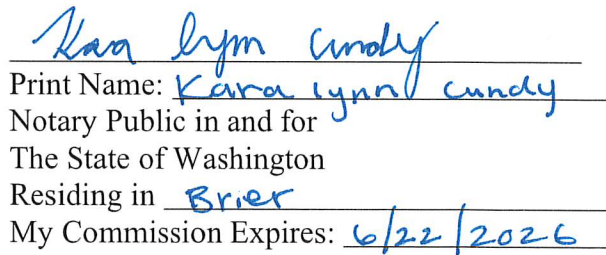 Kara Lynn Cundy
Print Name: Kara Lynn Cundy
Notary Public in and for
The State of Washington
Residing in Brier
My Commission Expires: 6/22/2026